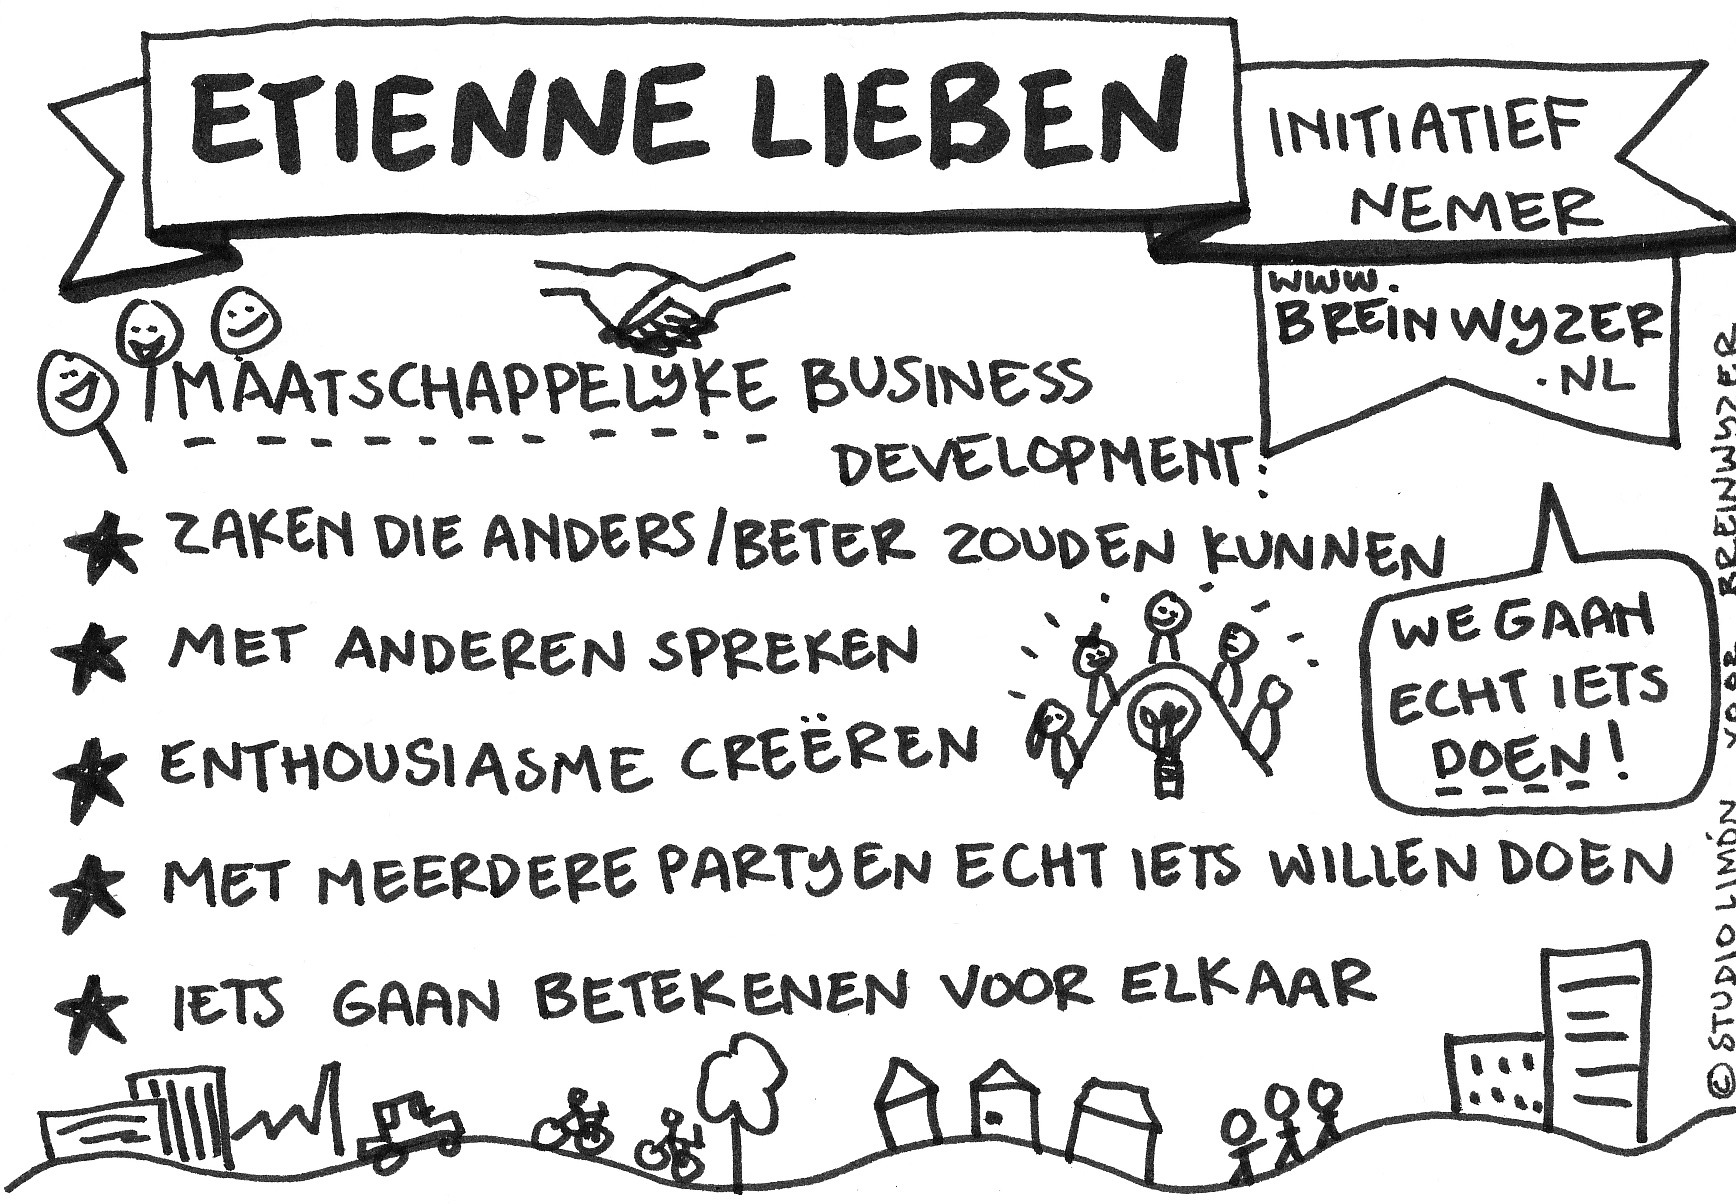 ETIENNE LIEBEN
INITIATIEF
NEMER
WWW.
BREINWYZER
.NL
MAATSCHAPPELYKE BUSINESS
DEVELOPMENT:
ZAKEN DIE ANDERS/BETER ZOUDEN KUNNEN
MET ANDEREN SPREKEN
ENTHOUSIASME CREËREN
MET MEERDERE PARTYEN ECHT IETS WILLEN DOEN
IETS GAAN BETEKENEN VOOR ELKAAR
WE GAAN
ECHT IETS
DOEN!
© STUDIO LIMÓN VOOR BREINWYZER